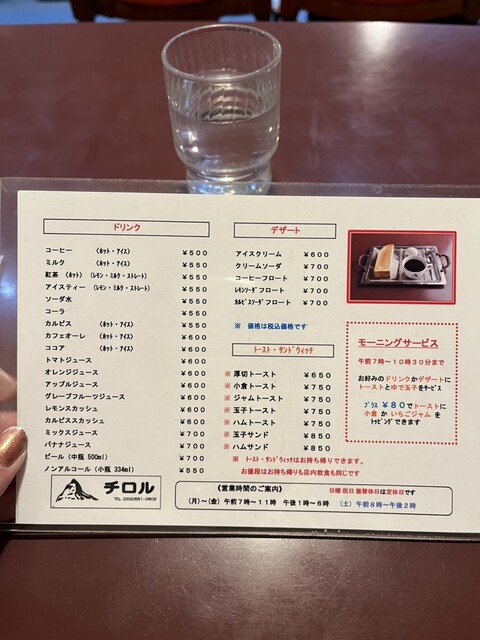 ドリンク
コーヒー （ホット・アイス） ￥５００
ミルク （ホット・アイス） ￥５５０
紅茶（ホット）（レモン・ミルク・ストレート） ￥５５０
アイスティー（レモン・ミルク・ストレート） ￥５５０
ソーダ水 ￥５５０
コーラ ￥５５０
カルピス （ホット・アイス） ￥５５０
カフェオーレ （ホット・アイス） ￥６００
ココア （ホット・アイス） ￥６００
トマトジュース ￥６００
オレンジジュース ￥６００
アップルジュース ￥６００
グレープフルーツジュース ￥６００
レモンスカッシュ ￥６００
カルピススカッシュ ￥６００
ミックスジュース ￥７００
バナナジュース ￥７００
ビール（中瓶 500ml） ￥７００
ノンアルコール（小瓶 334ml） ￥５５０
デザート
アイスクリーム ￥６００
クリームソーダ ￥７００
コーヒーフロート ￥７００
レモンソーダフロート ￥７００
カルピスソーダフロート ￥７００
※ 価格は税込価格です
トースト・サンドウィッチ
※厚切トースト ￥６５０
※小倉トースト ￥７５０
※ジャムトースト ￥７５０
※玉子トースト ￥７５０
※ハムトースト ￥７５０
※玉子サンド ￥８５０
※ハムサンド ￥８５０
※ トースト・サンドウィッチはお持ち帰りできます。
お値段はお持ち帰りも店内飲食も同じです
モーニングサービス
午前７時～１０時３０分まで
お好みのドリンクかデザートに
トーストとゆで玉子をサービス
プラス ￥８０でトーストに
小倉 か いちごジャム を
トッピングできます
チロル
《営業時間のご案内》 日曜 祝日 振替休日は定休日です
（月）～（金）午前７時～１１時 午後１時～６時 （土）午前８時～午後２時